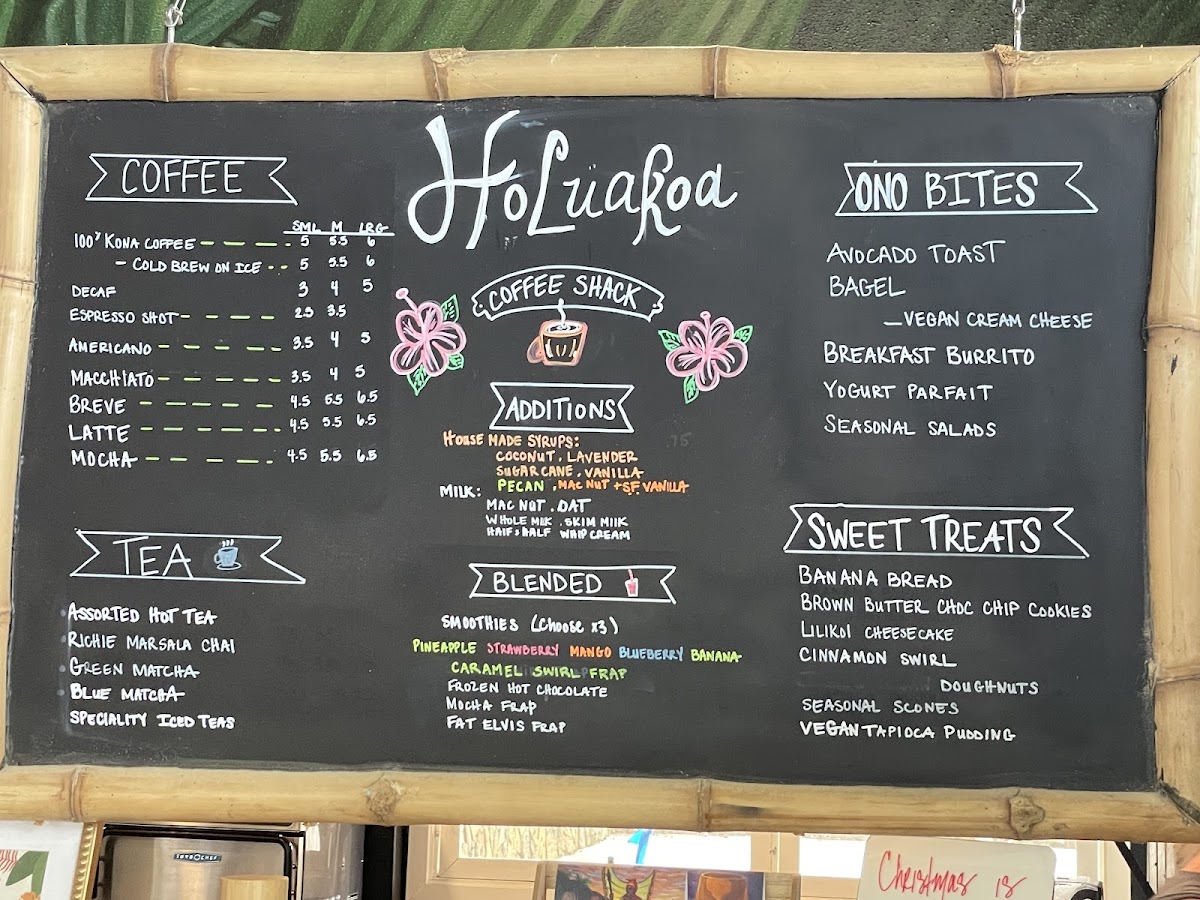 HoLuaKoa
COFFEE SHACK
COFFEE
SML M LRG
100% KONA COFFEE - - - - 5 5.5 6
- COLD BREW ON ICE - - 5 5.5 6
DECAF 3 4 5
ESPRESSO SHOT - - - - 2.5 3.5
AMERICANO - - - - - 3.5 4 5
MACCHIATO - - - - - 3.5 4 5
BREVE - - - - - 4.5 5.5 6.5
LATTE - - - - - 4.5 5.5 6.5
MOCHA - - - - - 4.5 5.5 6.5
TEA
ASSORTED HOT TEA
RICHIE MARSALA CHAI
GREEN MATCHA
BLUE MATCHA
SPECIALITY ICED TEAS
ADDITIONS
HOUSE MADE SYRUPS: .75
COCONUT, LAVENDER
SUGARCANE, VANILLA
PECAN, MAC NUT + SF VANILLA
MILK:
MAC NUT . OAT
WHOLE MILK . SKIM MILK
HALF & HALF WHIP CREAM
BLENDED
SMOOTHIES (CHOOSE X3)
PINEAPPLE STRAWBERRY MANGO BLUEBERRY BANANA
CARAMEL SWIRL FRAP
FROZEN HOT CHOCOLATE
MOCHA FRAP
FAT ELVIS FRAP
ONO BITES
AVOCADO TOAST
BAGEL
- VEGAN CREAM CHEESE
BREAKFAST BURRITO
YOGURT PARFAIT
SEASONAL SALADS
SWEET TREATS
BANANA BREAD
BROWN BUTTER CHOC CHIP COOKIES
LILIKOI CHEESECAKE
CINNAMON SWIRL
DOUGHNUTS
SEASONAL SCONES
VEGAN TAPIOCA PUDDING
TURBOCHEF
Christmas is